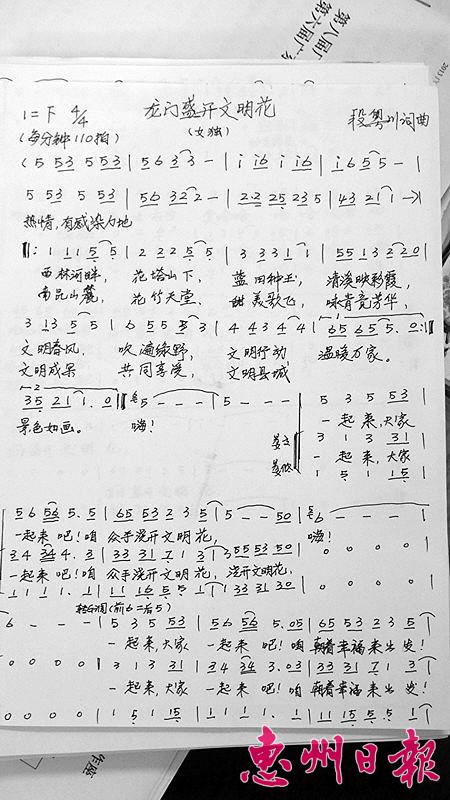 第八届广
第六届广
2013.1
龙门盛开文明花
1=F 4/4
段粤川词曲
(每分钟110拍)
(女独)
(5 53 5 53 | 56 3 3 - | i i6 i i6 | i 6 5 5 - |
5 53 5 53 | 56 32 2 - | 2 22 25 23 5 | 43 2 1 1 -)
热情,有感染力地
1 1 1 5 5 | 2 2 2 5 5 | 3 3 3 3 1 | 5 5 1 3 2 2 0 |
西林河畔, 花塔山下, 蓝田种玉, 清溪映彩霞,
南昆山麓, 花竹天堂, 甜美歌飞, 味肯亮芳华,
3 13 5 5 | 6 5 5 5 3 | 4 4 3 4 4 | 65 65 5. 0
文明春风, 吹遍绿野, 文明行动 温暖万家。
文明成果 共同享受, 文明县城
35 21 1. 0 | 5 - - - | 5 - - - | 5 3 5 53
景色如画。 嗨! 一起来,大家
3 1 3 31
一起来,大家
1 5 1 15
56 56 5. 5 | 65 53 2 3 5 | 5 - - 50 | 6 - - -
一起来 吧!咱 众手浇开文明花, 嗨!
34 34 4. 3 | 33 31 7 1 3 | 35 55 53 50 | 0 0 0 0
一起来 吧!咱 众手浇开文明花, 浇开文明花,
11 11 1. 1 | 11 16 5 5 1 | 33 33 31 30 | 0 0 0 0
转G调(前6=后5)
6 - - - | 5 3 5 53 | 56 56 5. 05 | 65 53 23 5
一起来,大家 一起来 吧!咱 朝着幸福来出发!
0 0 0 0 | 3 1 3 31 | 34 34 3. 03 | 33 31 7 1 3
一起来,大家 一起来 吧!咱 朝着幸福来出发!
0 0 0 0 | 1 5 1 15 | 11 11 1. 01 | 11 15 5 5 1
惠州日报